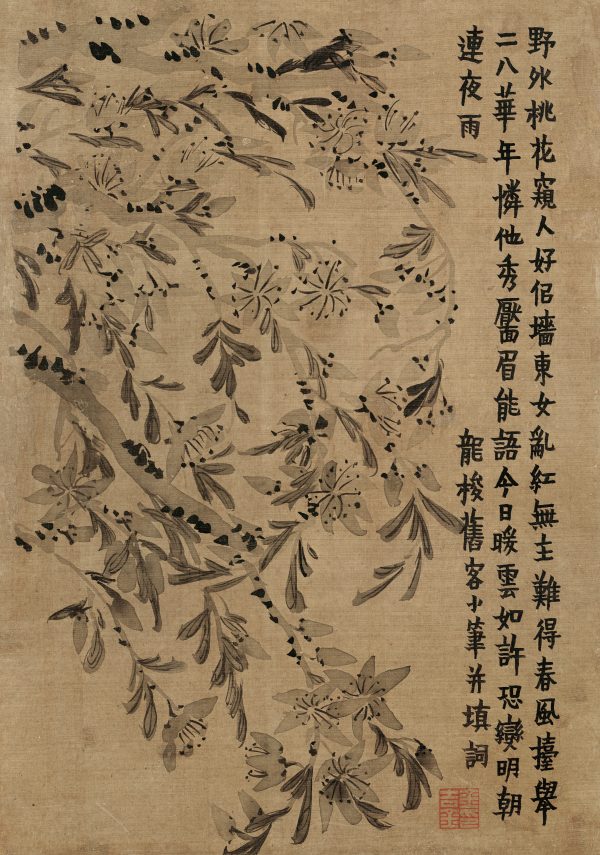 野外桃花窺人好侣墻東女亂紅無主難得春風擡舉
二八華年憐他秀靨眉能語今日暖雲如許恐變明朝
連夜雨
龍梭舊客小筆并填詞